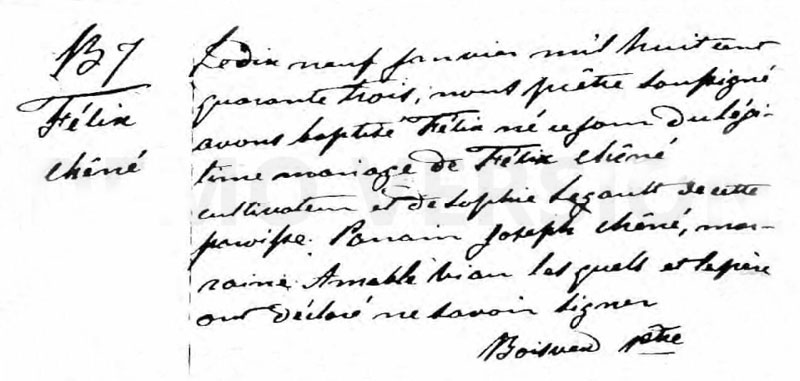 B 7
Félix
Chêné
Ledix neuf janvier mil huit cent
quarante trois, nous prêtre soussigné
avons baptisé Félix né ce jour du légi-
time mariage de Félix Chêné
cultivateur et de Sophie Legault de cette
paroisse. Parrain Joseph Chêné, mar-
raine Amable vian lesquels et le père
ont déclaré ne savoir signer
Boisvert ptre
DEMO VERSION